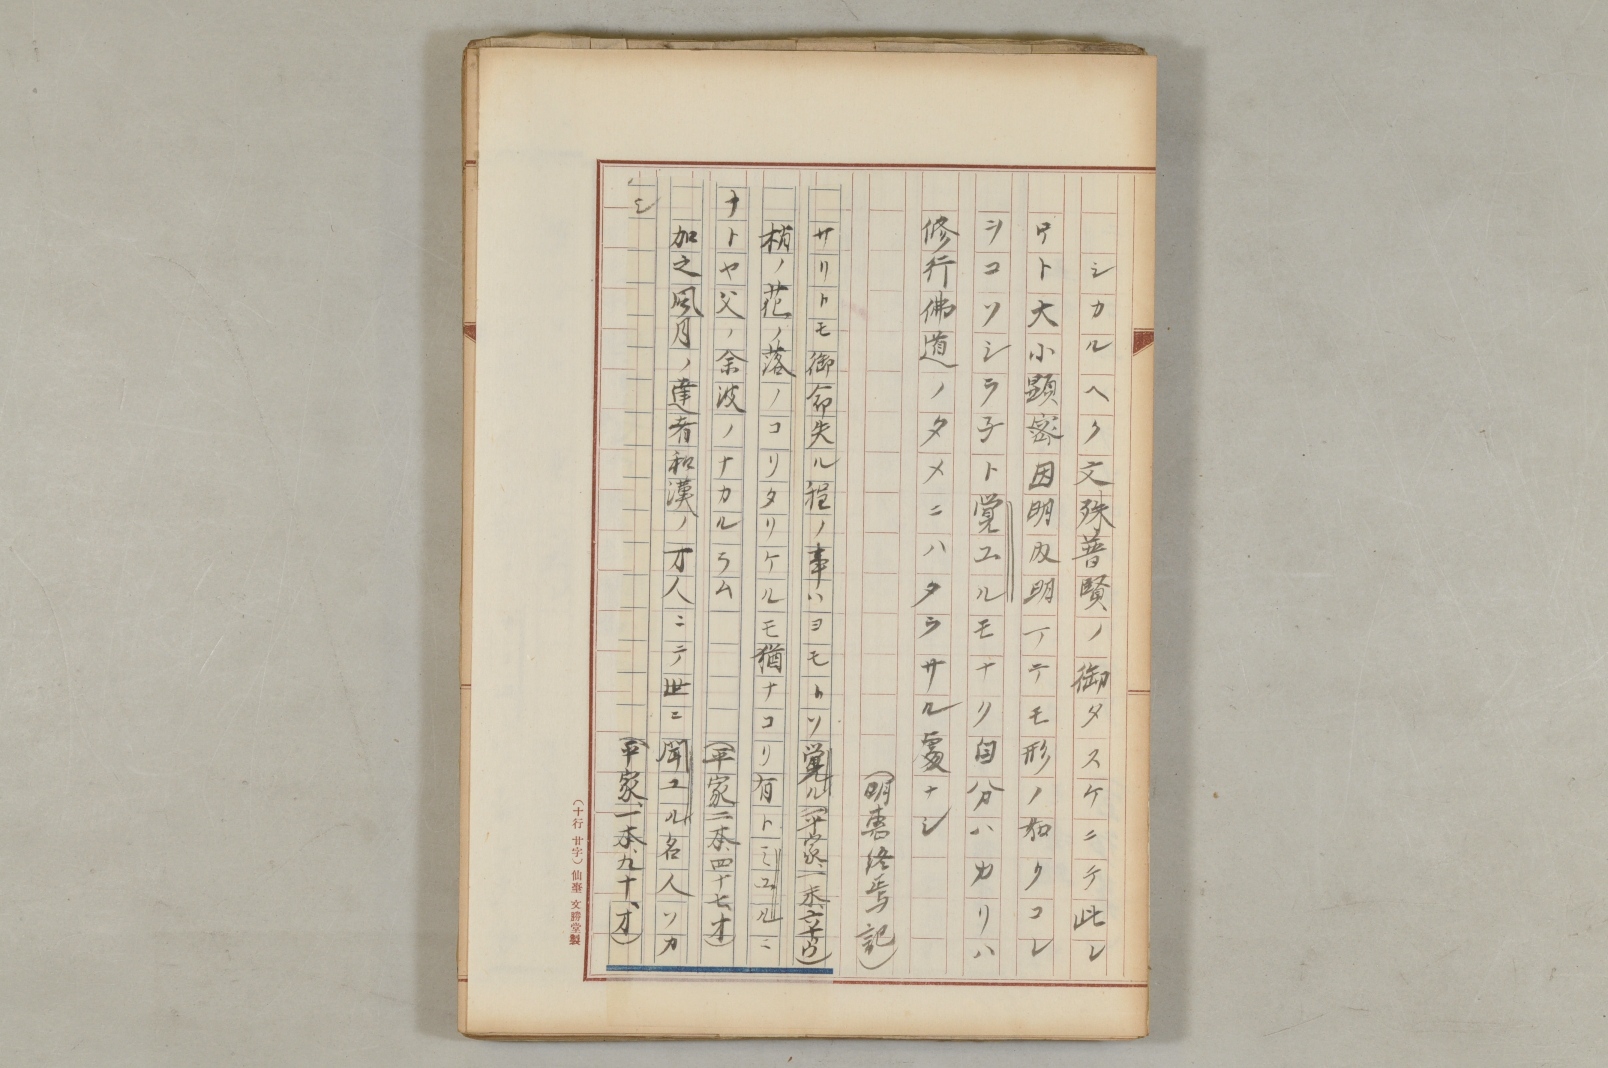 シカルヘク文殊普賢ノ御タスケニテ此レ
ワト大小顕密因明内明ノテモ形ノ如クコレ
ヲコソシラ子ト覚エルモナリ自分ハカリハ
修行佛道ノタメニハタラサル處ナシ
(明恵終焉記)
サリトモ御命失ル程ノ事ハヨモトソ覚ル(平家、一末、六十ウ)
梢ノ花ノ落ノコリタリケルモ猶ナコリ有トミエルニ
ナトヤ父ノ余波ノナカルラム(平家二本、四十七、オ)
加之風月ノ達者和漢ノ才人ニテ世ニ聞エル名人ソカ
シ(平家、一本、九十、オ)
(十行 廿字) 仙臺 文勝堂製